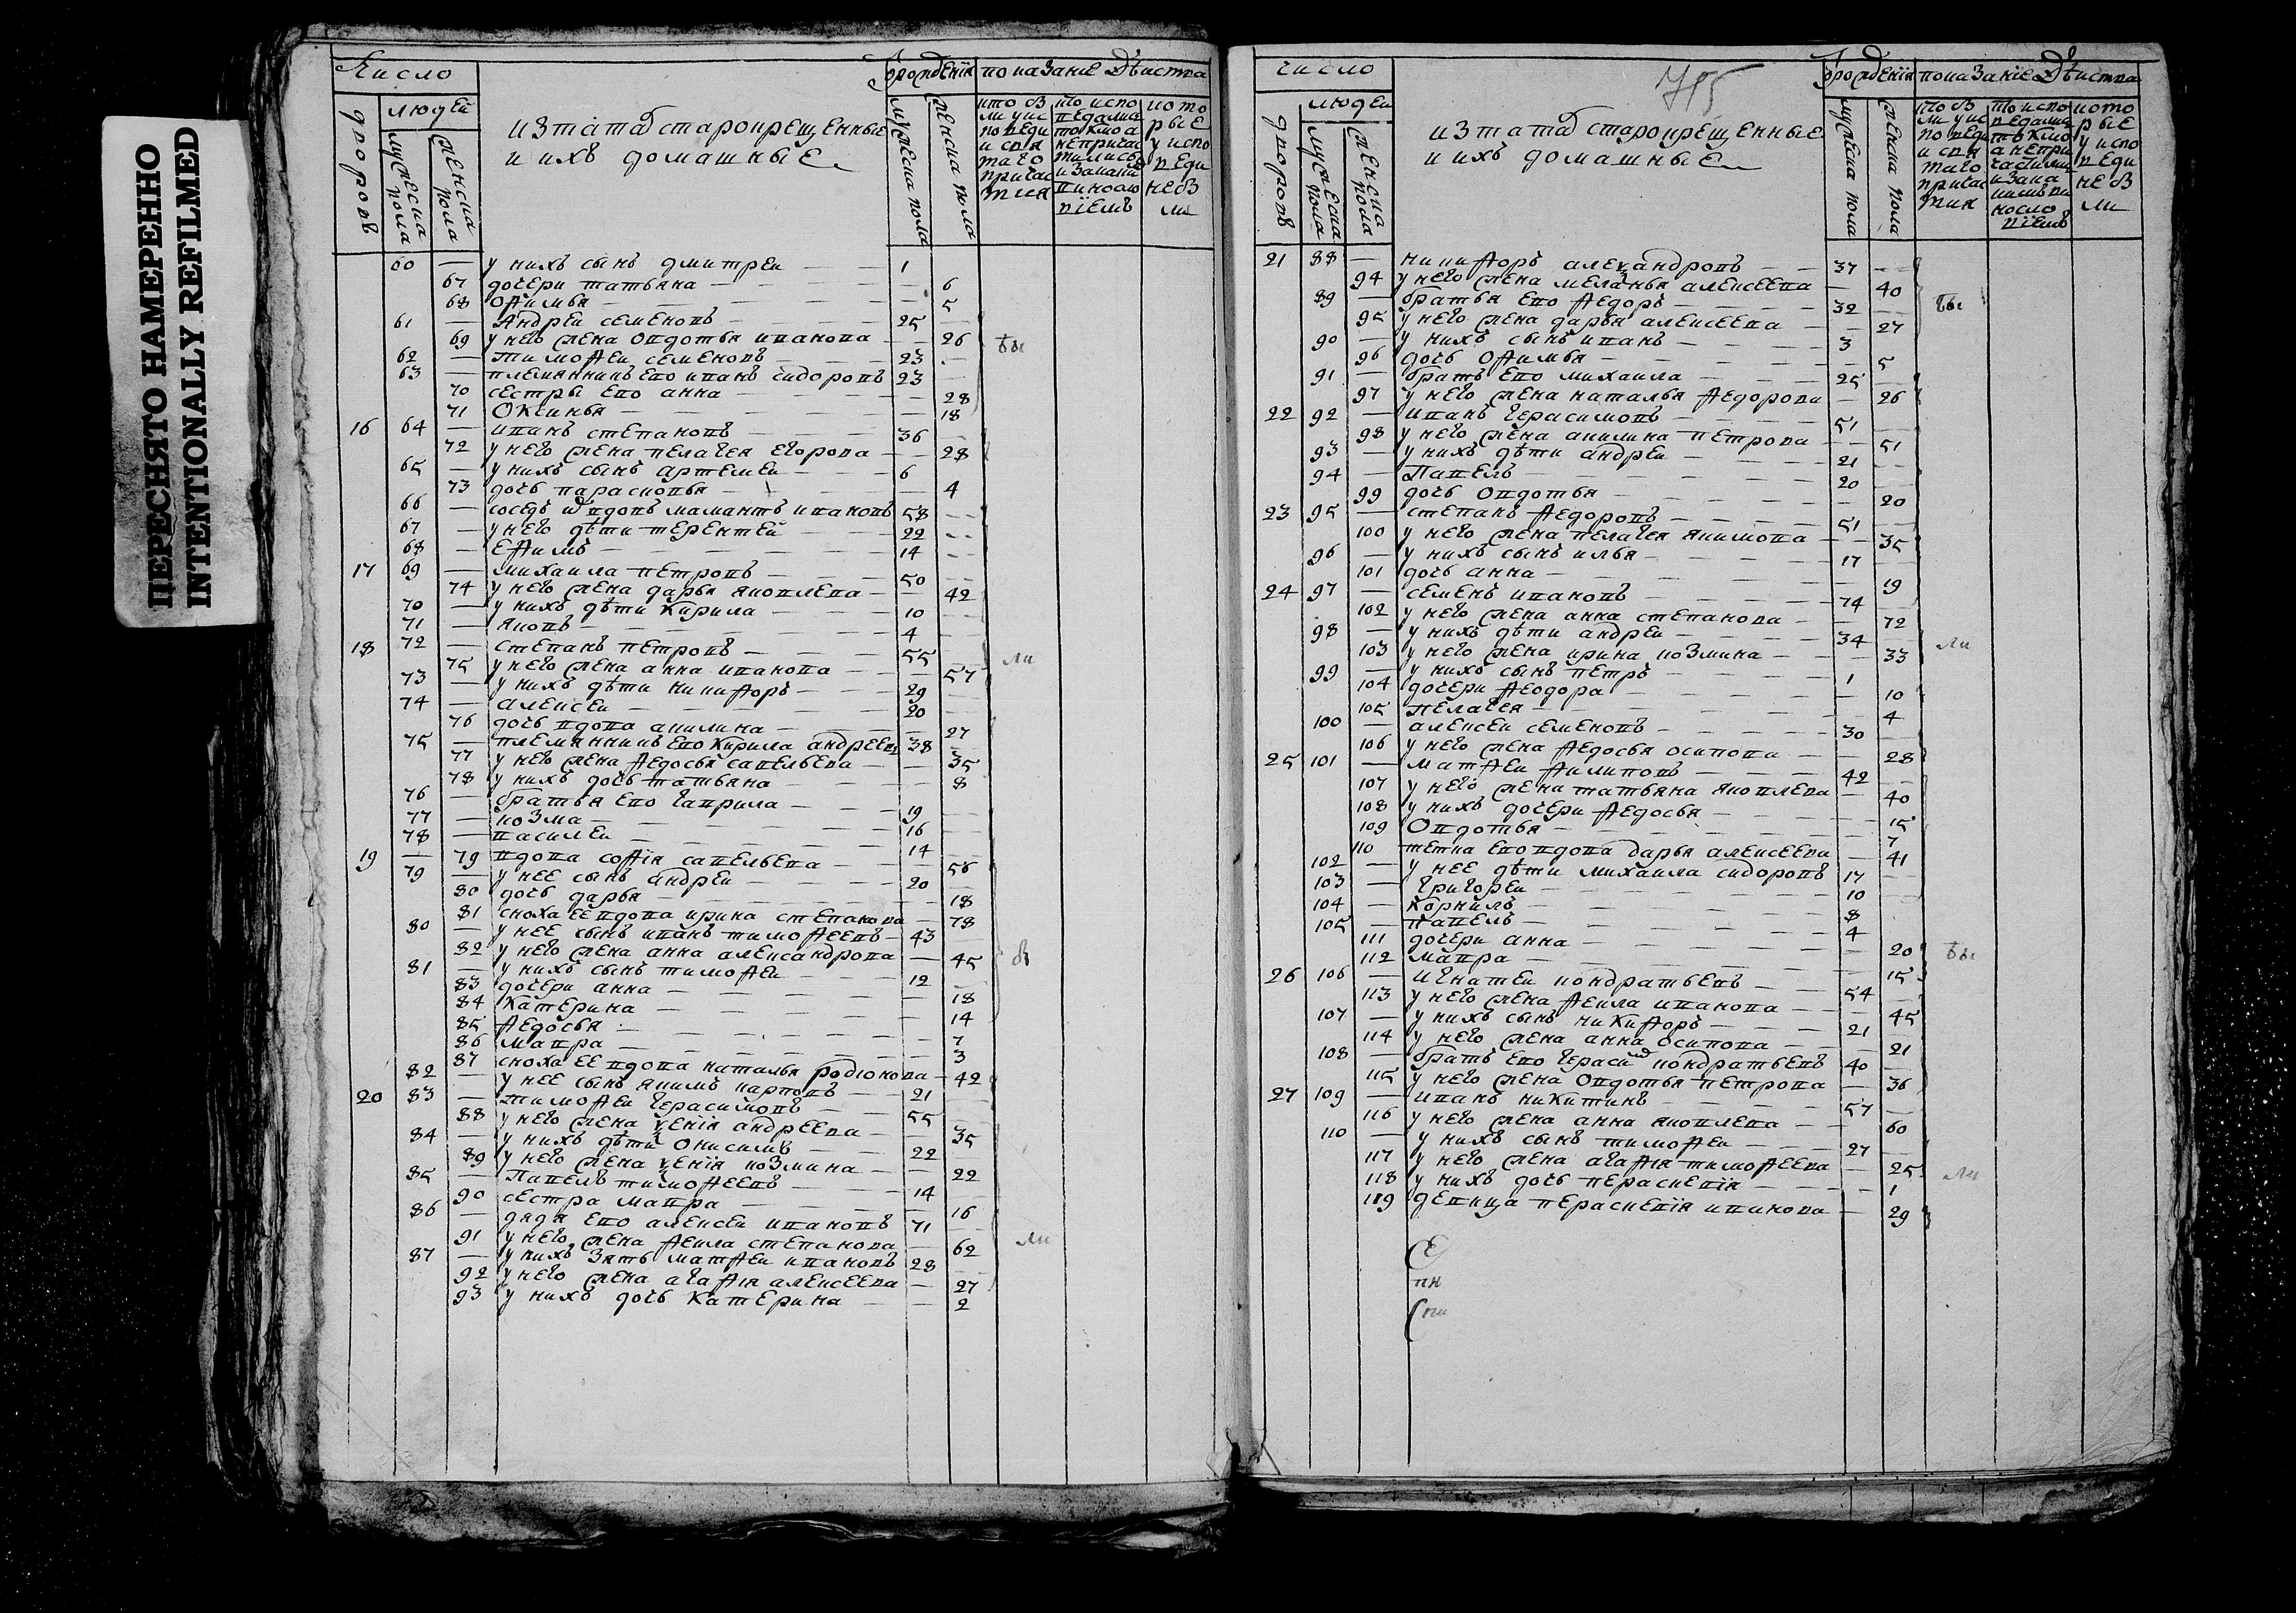 ПЕРЕСНЯТО НАМЕРЕННО
INTENTIONALLY REFILMED
Число
людей
дворовъ
мужеска пола
женска пола
изтатаръ старокрещенные
и ихъ домашные
от рождения
мужеска пола
женска пола
показание действа
кто были у исповеди и святаго причастия
кто исповедались токмо а не причастились и за каким виновствием
которые у исповеди не были
60 — у нихъ сынъ дмитреи — 1
67 дочери татьяна — 6
68 офимья — 5
61 — Андреи семеновъ — 25
69 у него жена овдотья иванова — 26
62 — тимофеи семеновъ — 23
63 — племянникъ ево иванъ сидоровъ 23
70 сестры ево анна — 28
71 Оксинья — 18
16 64 — иванъ степановъ — 36
72 у него жена пелагея егорова — 28
65 — у нихъ сынъ артемеи — 6
73 дочь парасковья — 4
66 — соседъ вдовъ мамантъ ивановъ 58
67 — у него дѣти терентей — 22
68 — Ефимъ — 14
17 69 — михаила петровъ — 50
74 у него жена дарья яковлева — 42
70 — у нихъ дѣти Кирила — 10
71 — яковъ — 4
18 72 — степанъ петровъ — 55
75 у него жена анна иванова — 57
73 — у нихъ дѣти никифоръ — 29
74 — алексеи — 20
76 дочь вдова акилина — 27
75 — племянникъ ево Кирила андреевъ 38
77 у него жена федосья савельева — 35
78 у нихъ дочь татьяна — 8
76 — братья ево гаврила — 19
77 — козма — 16
78 — василеи — 14
19 — 79 вдова софія савельева — 56
79 — у нее сынъ андреи — 20
80 дочь дарья — 18
81 сноха ее вдова ирина степанова — 78
80 — у нее сынъ иванъ тимофеевъ — 43
82 у него жена анна александрова — 45
81 — у нихъ сынъ тимофеи — 12
83 дочери анна — 18
84 Катерина — 14
85 федосья — 7
86 мавра — 3
87 сноха ее вдова наталья родионова — 42
82 — у нее сынъ якимъ карповъ — 21
20 83 — тимофеи герасимовъ — 55
88 у него жена ѯенія андреева — 35
84 — у нихъ дѣти Онисимъ — 22
89 у него жена ѯенія козмина — 22
85 — Павелъ тимофеевъ — 14
90 сестра мавра — 16
86 — дядя ево алексеи ивановъ 71
91 у него жена фекла степанова — 62
87 — у нихъ зять матфеи ивановъ 28
92 у него жена агафія алексеева — 27
93 у нихъ дочь Катерина — 2
бы
ли
бы
ли
715
число
людеи
дворовъ
мужеска пола
женска пола
изтатаръ старокрещенные
и ихъ домашные
от рождения
мужеска пола
женска пола
показание действа
21 88 — никифоръ алеѯандровъ — 37
94 у него жена меланья алексеева — 40
89 — братья ево федоръ — 32
95 у него жена дарья алексеева — 27
90 — у нихъ сынъ иванъ — 3
96 дочь офимья — 5
91 — братъ ево михаила — 25
97 у него жена наталья федорова — 26
22 92 — иванъ герасимовъ — 51
98 у него жена акилина петрова — 51
93 — у нихъ дѣти андреи — 21
94 — Павелъ — 20
99 дочь овдотья — 20
23 95 — степанъ федоровъ — 51
100 у него жена пелагея якимова — 35
96 — у нихъ сынъ илья — 17
101 дочь анна — 19
24 97 — семенъ ивановъ — 74
102 у него жена анна степанова — 72
98 — у нихъ дѣти андреи — 34
103 у него жена ирина козмина — 33
99 — у нихъ сынъ петръ — 1
104 дочери феодора — 10
105 пелагея — 4
100 — алексеи семеновъ — 30
106 у него жена федосья осипова — 28
25 101 — матфеи филиповъ — 42
107 у него жена татьяна яковлева — 40
108 у нихъ дочери федосья — 15
109 Овдотья — 7
110 тетка ево вдова дарья алексеева — 41
102 — у нее дѣти михаила сидоровъ 17
103 — григореи — 10
104 — корнилъ — 8
105 — павелъ — 4
111 дочери анна — 20
112 мавра — 15
26 106 — игнатеи кондратьевъ — 54
113 у него жена фекла иванова — 45
107 — у нихъ сынъ никифоръ — 21
114 у него жена анна осипова — 21
108 — братъ ево герасимъ кондратьевъ 40
115 у него жена Овдотья петрова — 36
27 109 — иванъ никитинъ — 57
116 у него жена анна яковлева — 60
110 — у нихъ сынъ тимофеи — 27
117 у него жена агафія тимофеева — 25
118 у нихъ дочь перасцевія — 1
119 девица перасцевія иванова — 29
бы
ли
бы
ли